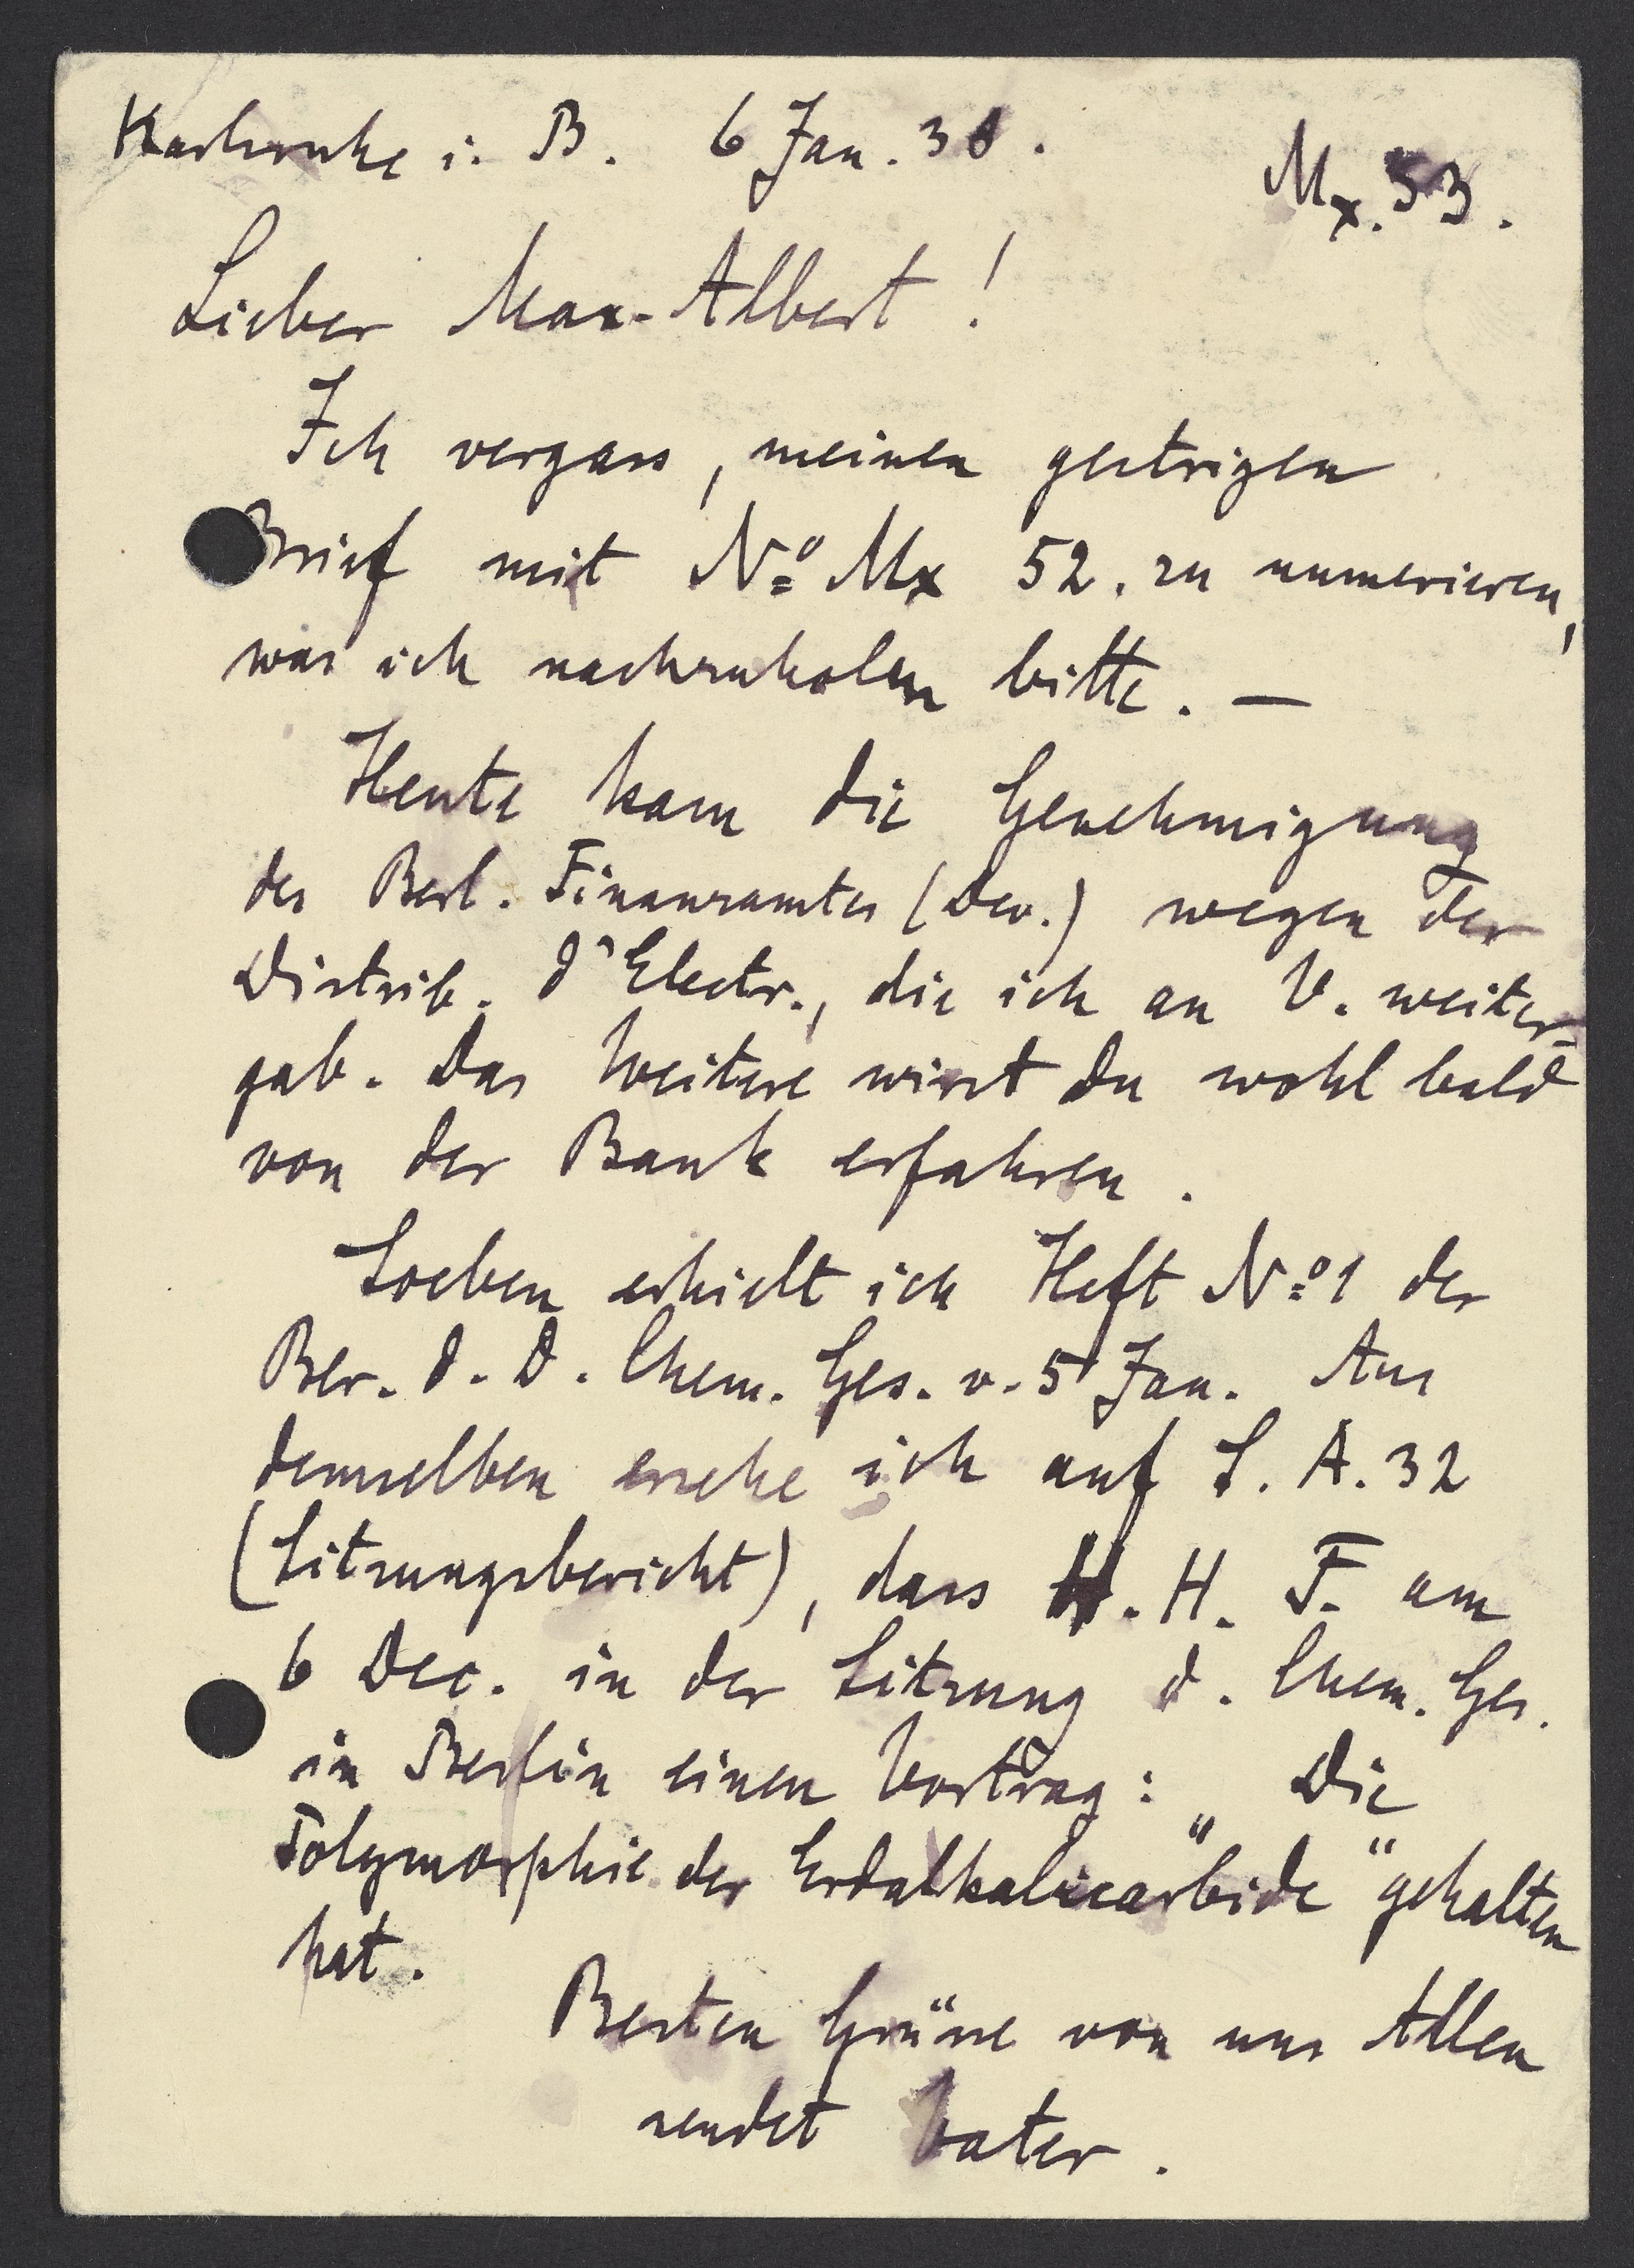 Karlsruhe i. B. 6 Jan. 38.
Mx. 53.
Lieber Max-Albert!
Ich vergass, meinen gestrigen
Brief mit No Mx 52. zu numerieren,
was ich nachzuholen bitte. —
Heute kam die Genehmigung
des Berl. Finanzamtes (Dev.) wegen der
Distrib. d'Electr., die ich an V. weiter-
gab. Das Weitere wirst du wohl bald
von der Bank erfahren.
Soeben erhielt ich Heft No 1 der
Ber. d. D. Chem. Ges. v. 5 Jan. Aus
demselben ersehe ich auf S. A. 32
(Sitzungsbericht), dass H. H. F. am
6 Dec. in der Sitzung d. Chem. Ges.
in Berlin einen Vortrag: „Die
Polymorphie der Erdalkalicarbide“ gehalten
hat.
Besten Grüsse von uns Allen
sendet Vater.